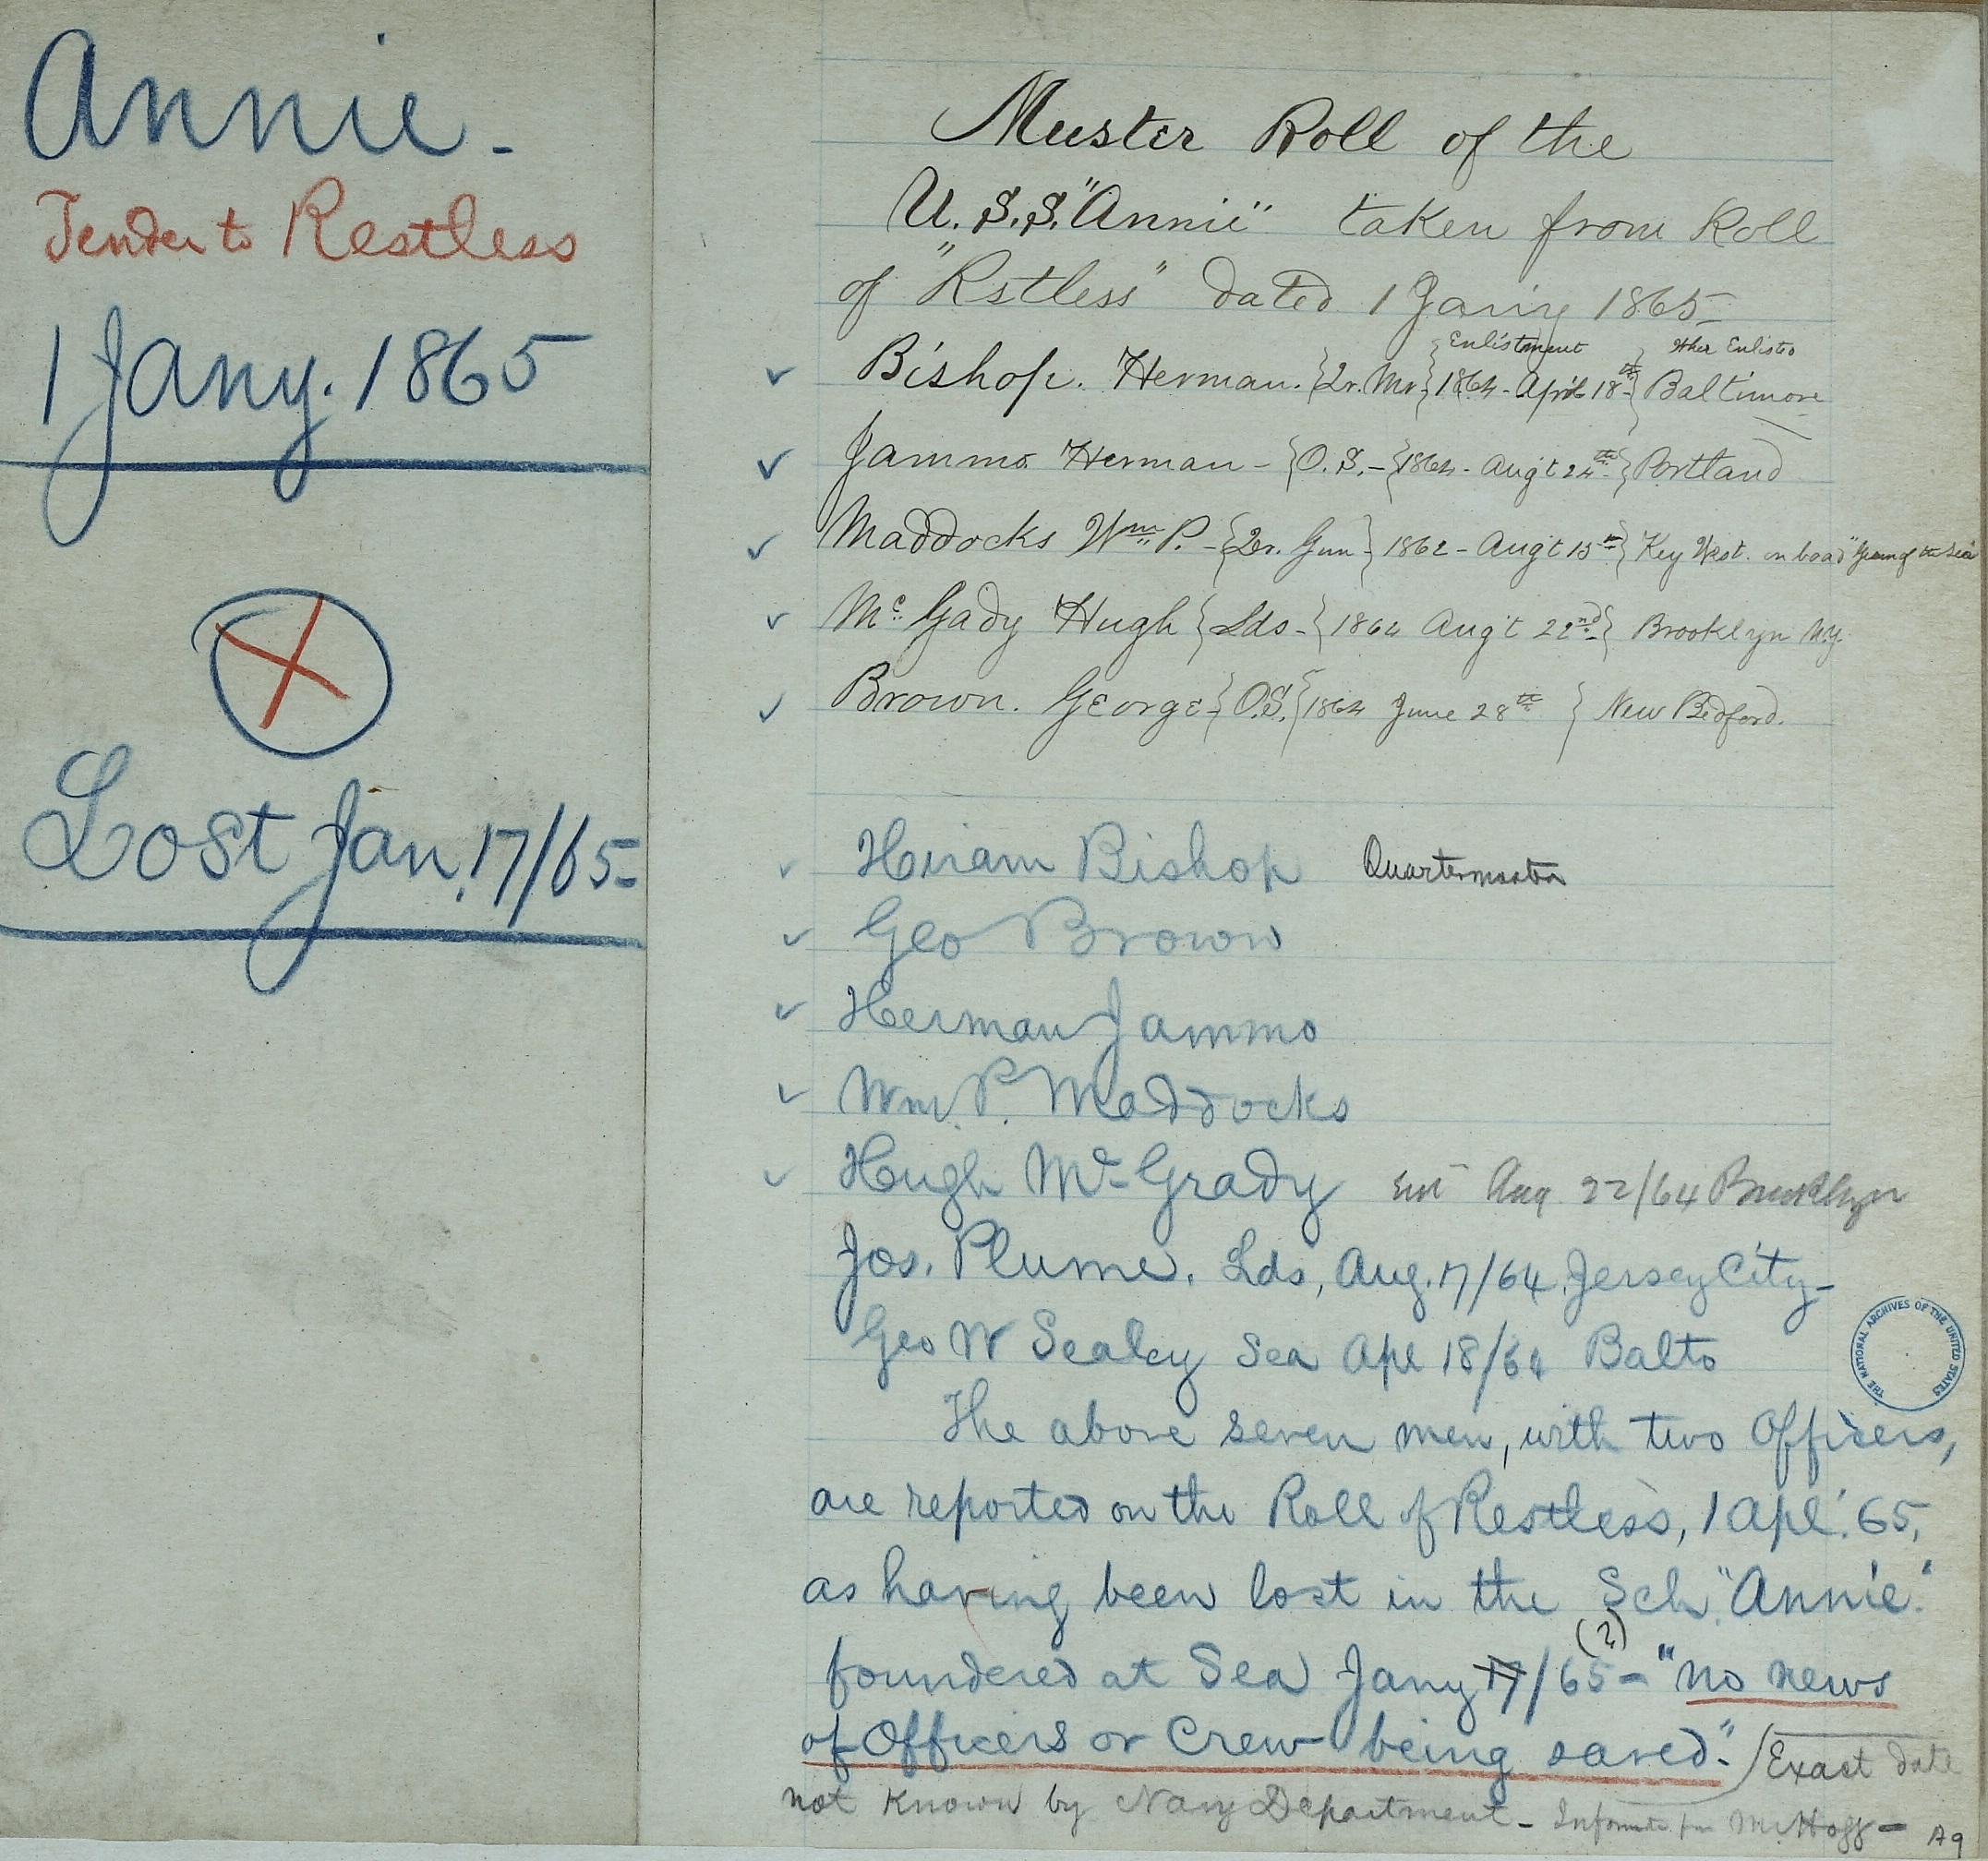 Annie -
Tender to Restless
1 Jany. 1865
Lost Jan. 17/65-
Muster Roll of the
U.S.S. "Annie" taken from Roll
of "Rstless" dated 1 Jan'y 1865-
Enlistment Wher Enlisted
Bishop. Herman. {Qr. Mr.} 1864 - April 18th } Baltimore
Jammo Herman - {O.S. - {1864 - Augt 24th } Portland
Maddocks Wm P. - {Qr. Gun } 1862 - Aug't 15th } Key West. on board "Gem of the Sea"
Mc Gady Hugh {Lds - {1864 Aug't 22nd } Brooklyn N.Y.
Brown. George } O.S. {1864 June 28th } New Bedford.
Hiram Bishop Quartermaster
Geo Brown
Herman Jammo
Wm. P. Maddocks
Hugh Mc Grady Enl Aug 22/64 Brooklyn
Jos. Plume. Lds, Aug. 17/64. Jersey City -
Geo W Sealey Sea Apl 18/64 Balto
THE NATIONAL ARCHIVES OF THE UNITED STATES
The above seven men, with two Officers,
are reported on the Roll of Restless, 1 Apl. '65,
as having been lost in the Sch. "Annie."
(?)
foundered at Sea Jany 17/65 - "no news
of Officers or Crew being saved." / Exact date
not known by Navy Department - Informtn fm Mr. Hoff -
A9